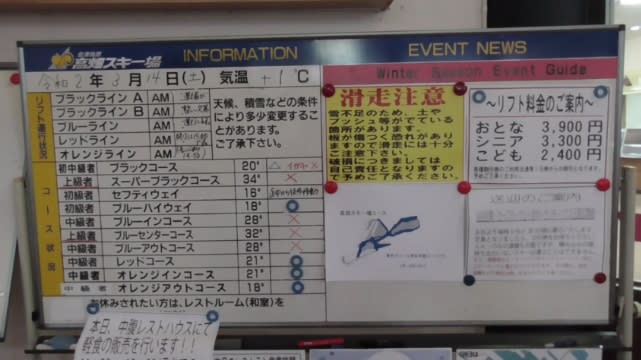 会津高原
高畑スキー場
INFORMATION
EVENT NEWS
令和2年3月14日(土) 気温 +1℃
Winter Season Event Guide
リフト運行状況
ブラックライン A AM
ブラックライン B AM
ブルーライン AM
レッドライン AM
オレンジライン AM
天候、積雪などの条件
により多少変更するこ
とがあります。
ご了承下さい。
コース状況
初中級者 ブラックコース 20° △ ×
上級者 スーパーブラックコース 34° ×
初級者 セフティウェイ 16°
初級者 ブルーハイウェイ 18° ○
中級者 ブルーインコース 28° ×
上級者 ブルーセンターコース 32° ×
中級者 ブルーアウトコース 28° ×
初級者 レッドコース 21° ○
中級者 オレンジインコース 21° ○
中級者 オレンジアウトコース 18° ○
お休みされたい方は、レストルーム(和室)を
本日、中腹レストハウスにて
軽食の販売を行います!!
滑走注意
雪不足のため、土や
ブッシュ等がでている
箇所があります。
板が傷つく恐れがあり
ますので滑走には十分
ご注意下さい。
破損につきましては
自己責任となりますの
で予めご了承ください。
~リフト料金のご案内~
おとな 3,900円
シニア 3,300円
こども 2,400円
高畑スキー場コース